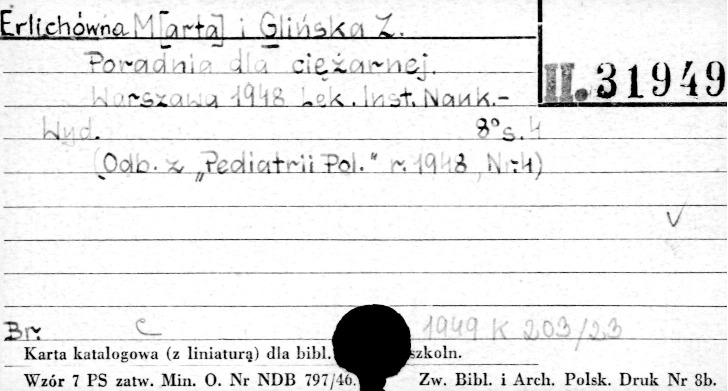 Erlichówna M[arta] i Glińska Z.
II. 31949
Poradnia dla ciężarnej.
Warszawa 1948 Lek. Inst. Nauk.-
Wyd. 8° s. 4
(Odb. z „Pediatrii Pol." r. 1948, Nr. 4)
Br. c 1949 K 203/23
Karta katalogowa (z liniaturą) dla bibl. szkoln.
Wzór 7 PS zatw. Min. O. Nr NDB 797/46. Zw. Bibl. i Arch. Polsk. Druk Nr 8b.